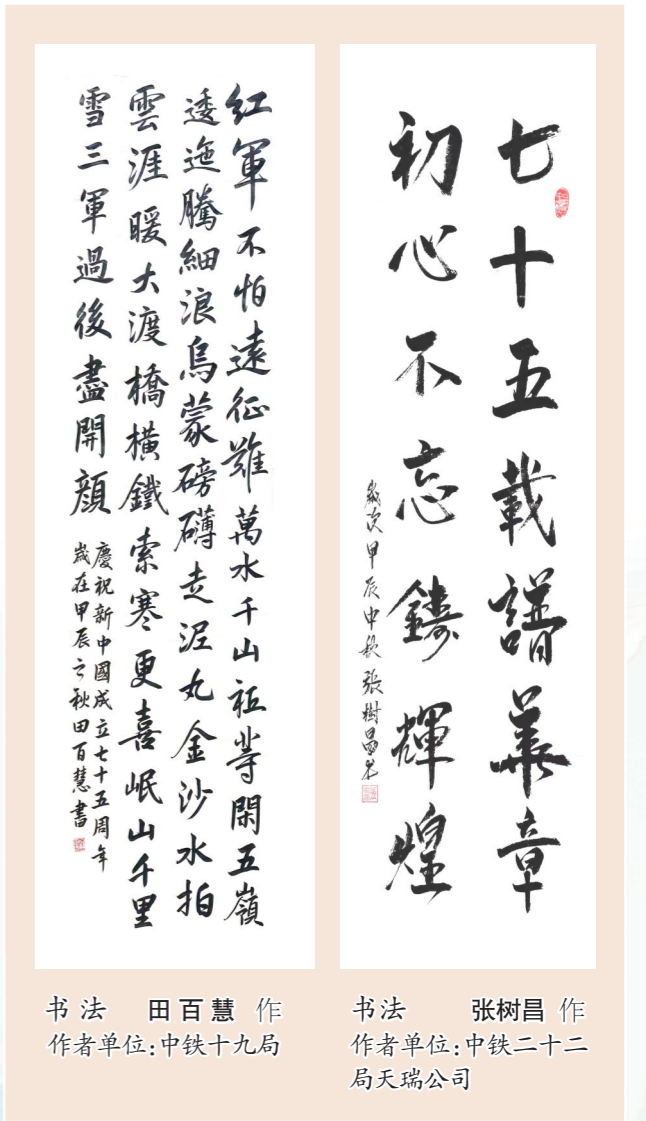 紅軍不怕遠征難萬水千山祇等閑五嶺
逶迤騰細浪烏蒙磅礴走泥丸金沙水拍
雲涯暖大渡橋橫鐵索寒更喜岷山千里
雪三軍過後盡開顏
慶祝新中國成立七十五周年
歲在甲辰之秋田百慧書
书法 田百慧 作
作者单位:中铁十九局
七十五載譜華章
初心不忘鑄輝煌
歲次甲辰中秋張樹昌書
书法 张树昌 作
作者单位:中铁二十二
局天瑞公司